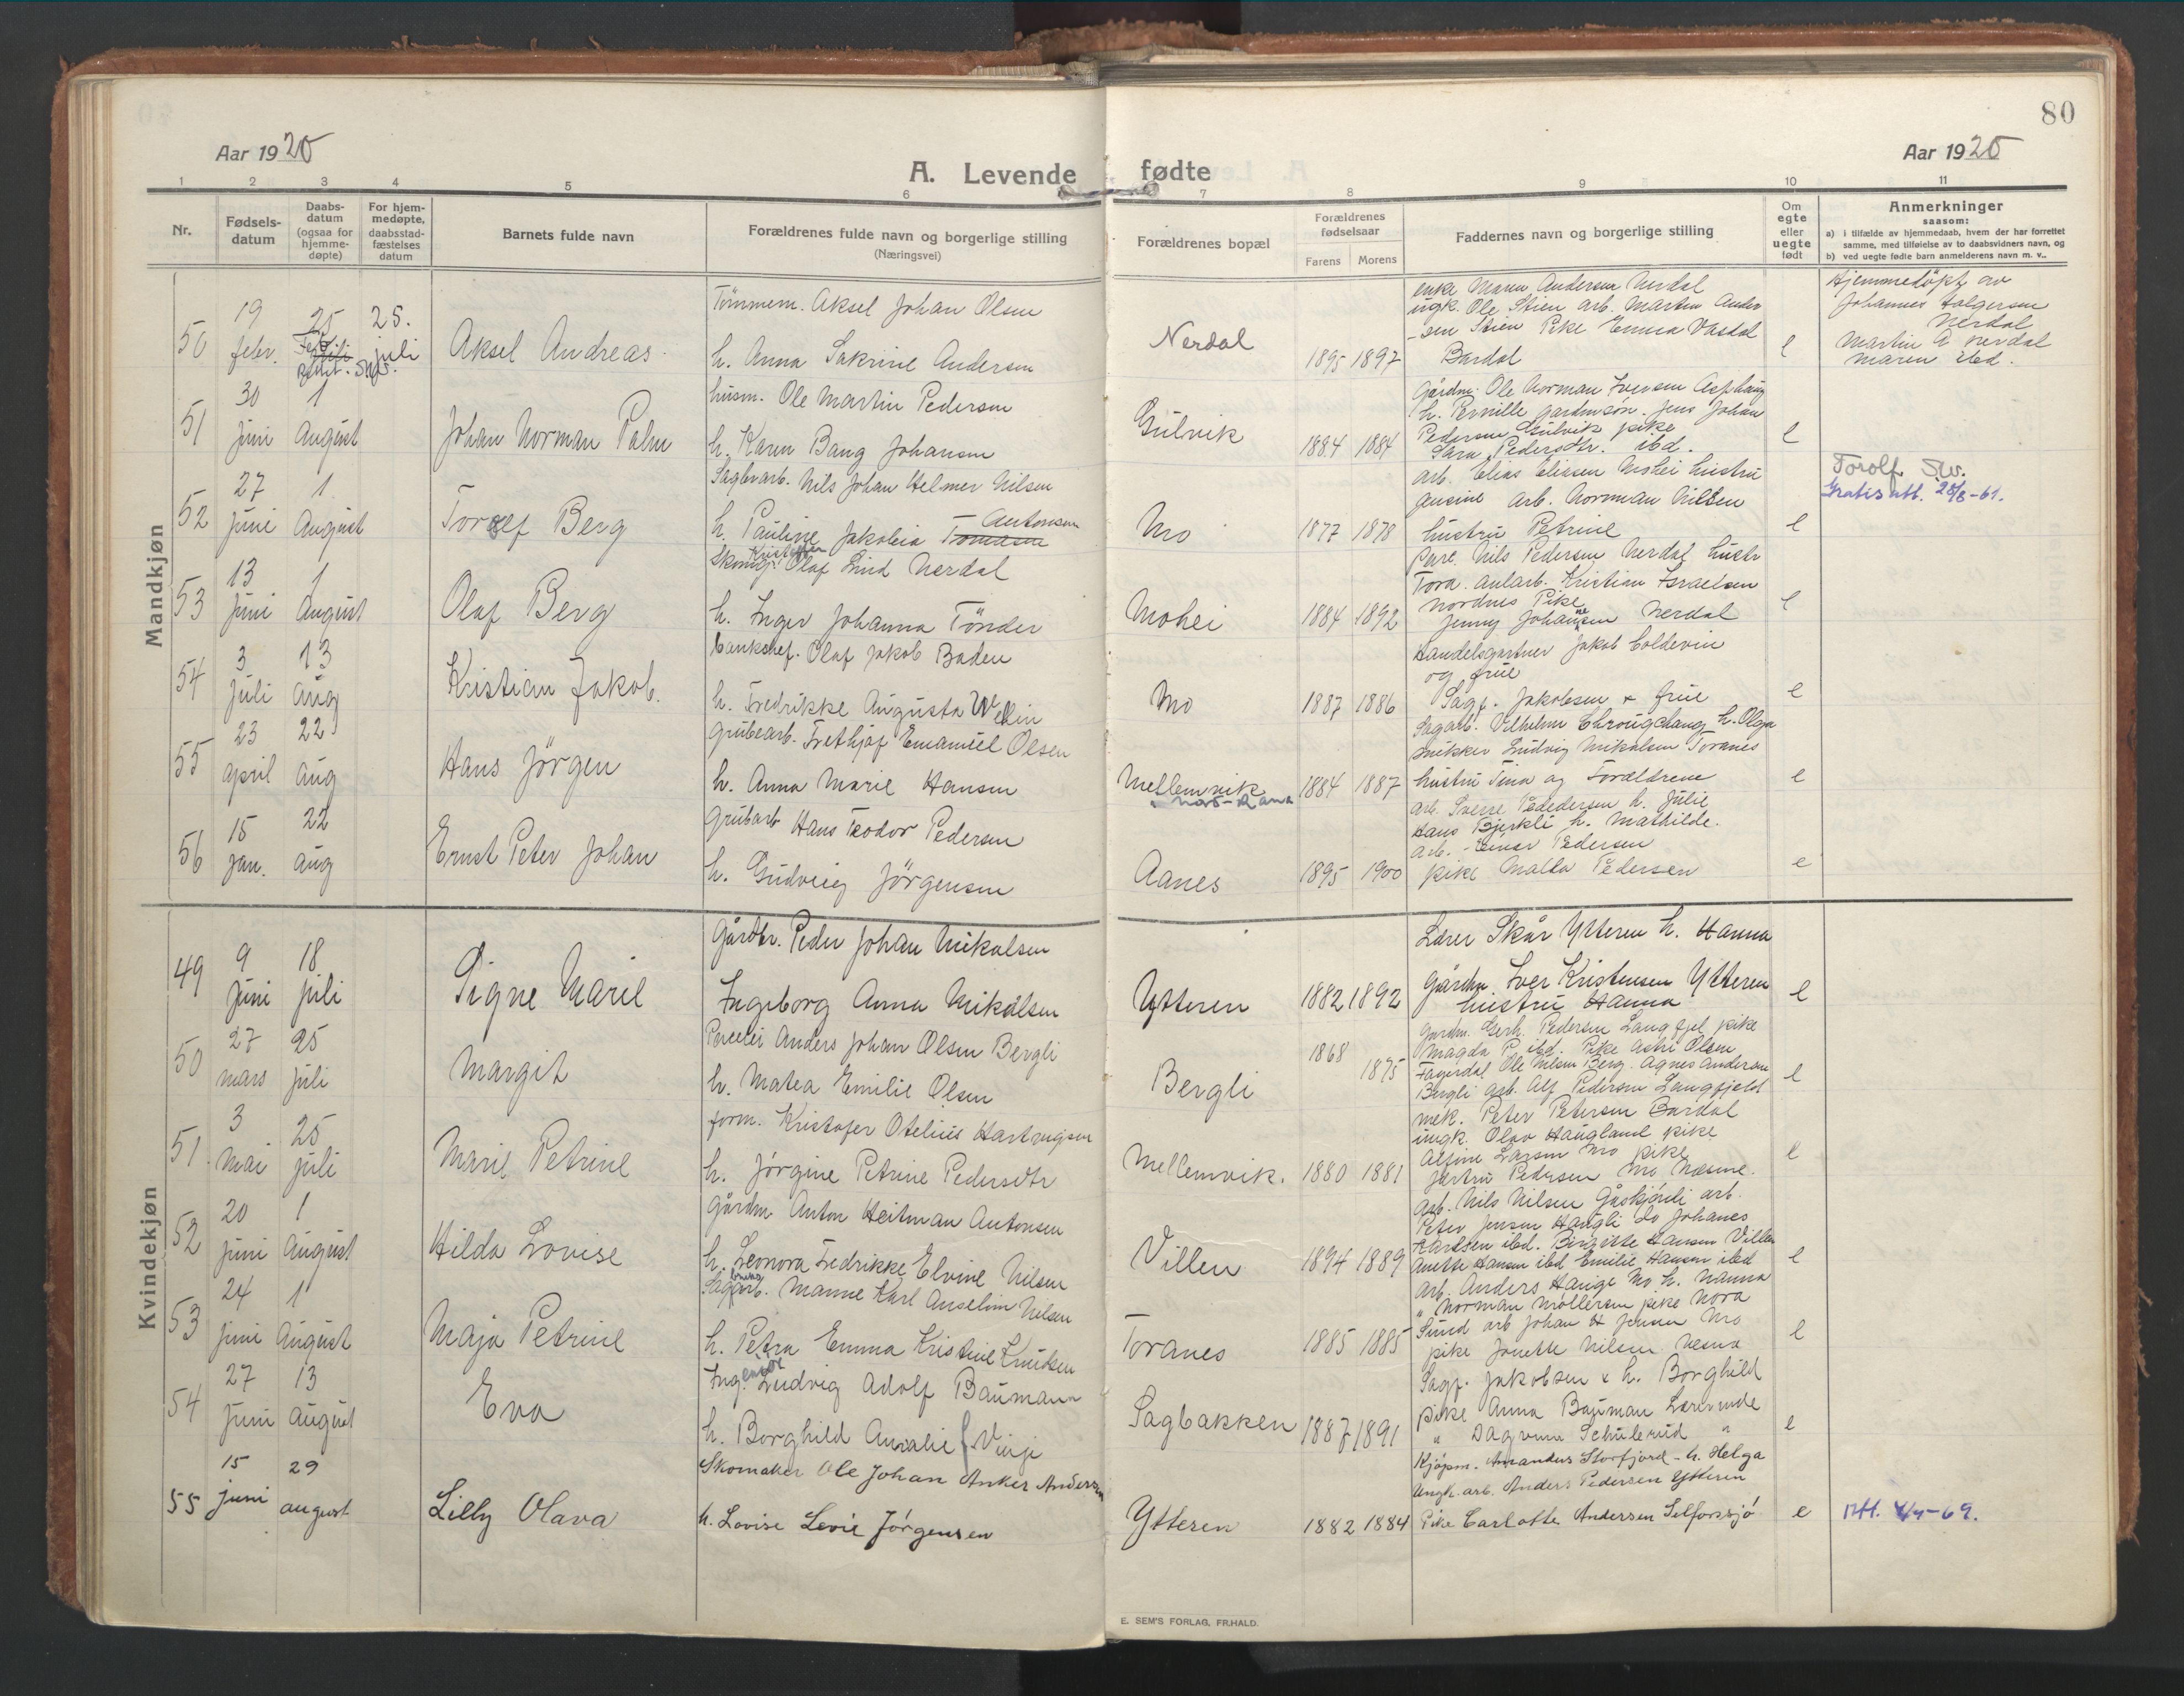 80
Aar 1920
Aar 1920
A. Levende fødte
1 2 3 4 5 6 7 8 9 10 11
Nr.
Fødsels-
datum
Daabs-
datum
(ogsaa for
hjemme-
døpte)
For hjem-
medøpte,
daabsstad-
fæstelses
datum
Barnets fulde navn
Forældrenes fulde navn og borgerlige stilling
(Næringsvei)
Forældrenes bopæl
Forældrenes
fødselsaar
Farens Morens
Faddernes navn og borgerlige stilling
Om
egte
eller
uegte
født
Anmerkninger
saasom:
a) i tilfælde av hjemmedaab, hvem der har forrettet
samme, med tilføielse av to daabsvidners navn, og
b) ved uegte fødte barn anmelderens navn m. v..
Mandkjøn
50
19
febr.
25
Feb.
25.
juli
Aksel Andreas
Tømmerm. Aksel Johan Olsen
h. Anna Sakrine Andersen
Nerdal
1895 1897
enke Maren Andersen Nerdal
ungk. Ole Stien arb. Martin Ander
sen Stien Pike Emma Vasdal
Bardal
e
Hjemmedöpt av
Johannes Holgersen
Nerdal
Martin A Nerdal
Maren ibd.
51
30
juni
1
August
Johan Norman Palm
husm. Ole Martin Pedersen
h. Karen Bang Johansen
Gulvik
1884 1884
Gårdm. Ole Norman Iversen Asphaug
h. Pernille gardmson. Jens Johan
Pedersen Gulvik pike
Sara Pedersdtr. ibd.
e
52
27
Juni
1
August
Torolf Berg
Sagbrarb. Nils Johan Helmer Nilsen
Antonsen
h. Pauline Jakobia Tomasen
Mo
1877 1878
arb. Elias Eliesen Mohei hustru
Jensine arb. Norman Nilsen
hustru Petrine
e
Torolf
Gratis att. 28/8-61.
53
13
juni
1
August
Olaf Berg
Kristoffer
Skomag. Olaf Lind Nerdal
h. Inger Johanna Tönder
Mohei
1884 1892
Parc. Nils Pedersen Nerdal hustr
Tora. anlarb. Kristian Israelsen
Nordnes Pike
Jenny Johansen Nerdal
e
54
3
Juli
13
Aug
Kristian Jakob.
bankchef. Olaf Jakob Baden
h. Fredrikke Augusta Wellin
Mo
1887 1886
Handelsgartner Jakob Coldevin
og frue
Sagf. Jakobsen & frue
e
55
23
April
22
Aug
Hans Jörgen
Grubearb. Frethjof Emanuel Olsen
h. Anna Marie Hansen
Mellemvik
Nord-Rana
1884 1887
Sagarb. Vilhelm h. Olga
snikker Ludvig Mikalsen Toranes
hustru Tina og Forældrene
e
56
15
jan.
22
aug
Ernst Peter Johan
Grubarb Hans Teodor Pedersen
h. Gudveig Jörgensen
Aanes
1895 1900
arb. Sverre Pedersen h. Julie
Hans Bjerkli h. Mathilde.
arb. Einar Pedersen
pike Malla Pedersen
e
Kvindekjøn
49
9
Juni
18
juli
Signe Marie
Gårdbr. Peder Johan Mikalsen
Ingeborg Anna Mikalsen
Ytteren
1882 1892
Lærer Skår Ytteren h. Hanna
Gårdm. Iver Kristensen Ytteren
hustru Hanna
e
50
27
mars
25
juli
Margit
Parcelei Anders Johan Olsen Bergli
h. Matea Emilie Olsen
Bergli
1868
1875
Gardm. Gerh. Pedersen Langfjel pike
Magda P. ibd. Pike Astri Olsen
Fagerdal Ole Nilsen Berg. Agnes Andersen
Bergli arb. Alf Pedersen Langfjeld
e
51.
3
Mai
25
juli
Marie Petrine
form. Kristofer Otelius Hartvigsen
h. Jörgine Petrine Pedersdtr
Mellemvik.
1880 1881
mek. Peter Petersen Bardal
ungk. Olav Haugland pike
Alfine Larsen Mo pike
Jertru Pedersen Mo
e
52
20
Juni
1
August
Hilda Lovise
Gårdm Anton Heitman Antonsen
h. Leonora Fredrikke Elvine Nilsen
Villen
1894 1889
arb. Nils Nilsen Gåskjönli arb.
Peter Jensen Haugli do Johanes
Karlsen ibd. Birgitte Hansen Villen
Anette Hansen ibd Emilie Hansen ibd
e
53
24
juni
1
August
Maja Petrine
Sagbrugarb. Manne Karl Anselim Nilsen
h. Petra Emma Kristine Knudsen
Toranes
1885 1885
arb. Anders Hauge Mo h. Nanna
" Norman Möllersen pike Nora
Sund arb Johan H Jensen Mo
pike Janette Nilsen Nesna
e
54
27
Juni
13
August
Eva
Ingeniör Ludvig Adolf Baumann
h. Borghild Amalie f. Vinje
Sagbakken
1887 1891
Sagf. Jakobsen & h. Borghild
pike Anna Bauman Lærerinde
" Dagrunn Schulerud "
e
55
15
juni
29
august
Lilly Olava
Skomaker Ole Johan Anker Andersen
h. Lovise Levie Jörgensen
Ytteren
1882 1884
Kjöpm. Amandus Storfjord - h. Helga
Ungk. arb. Anders Pedersen Ytteren
Pike Carlotte Andersen Selforssjö
e
Att. 4/4-69.
E. SEM'S FORLAG, FR.HALD.